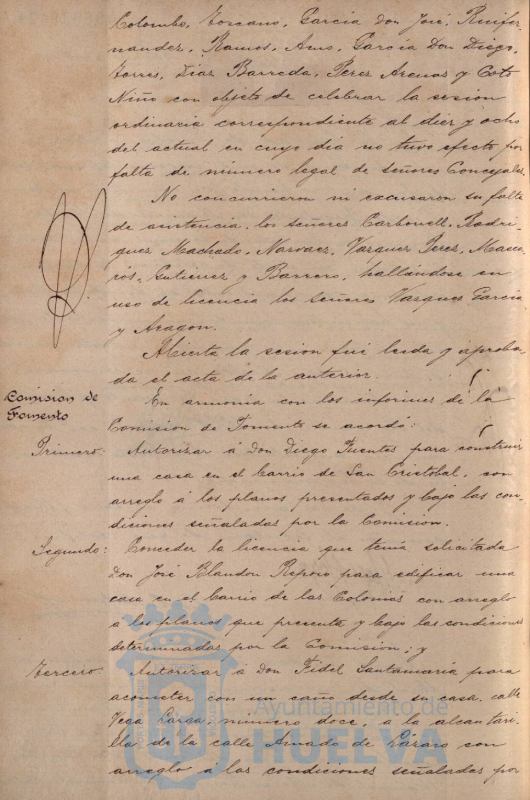 Colombo, Toscano, Garcia Don José, Ruifer-
nandez, Ramos, Amo, Garcia Don Diego,
Torres, Diaz Barreda, Perez Arenas y Coto
Niño con objeto de celebrar la sesion
ordinaria correspondiente al diez y ocho
del actual en cuyo dia no tuvo efecto por
falta de número legal de señores Concejales.
No concurrieron ni excusaron su falta
de asistencia, los señores Carbonell, Rodri-
guez Machado, Narvaez, Vazquez Perez,
Gutierrez y Barrero, hallándose en
uso de licencia los señores Vazquez Garcia
y Aragon.
Abierta la sesion fué leida y aproba-
da el acta de la anterior.
Comision de
Fomento
En armonia con los informes de la
Comision de Fomento se acordó:
Primero: Autorizar á Don Diego Fuentes para construir
una casa en el barrio de San Cristobal, con
arreglo á los planos presentados y bajo las con-
diciones señaladas por la Comision.
Segundo: Conceder la licencia que tenia solicitada
Don José Blandon para edificar una
casa en el barrio de las Colonias con arreglo
á los planos que presenta y bajo las condiciones
determinadas por la Comision; y
Tercero: Autorizar á Don Fidel Santamaria para
acometer con un caño desde su casa, calle
Vega Larga, número doce, a la alcantari-
lla de la calle Amado de Lázaro con
arreglo a las condiciones señaladas por
Ayuntamiento de
HUELVA